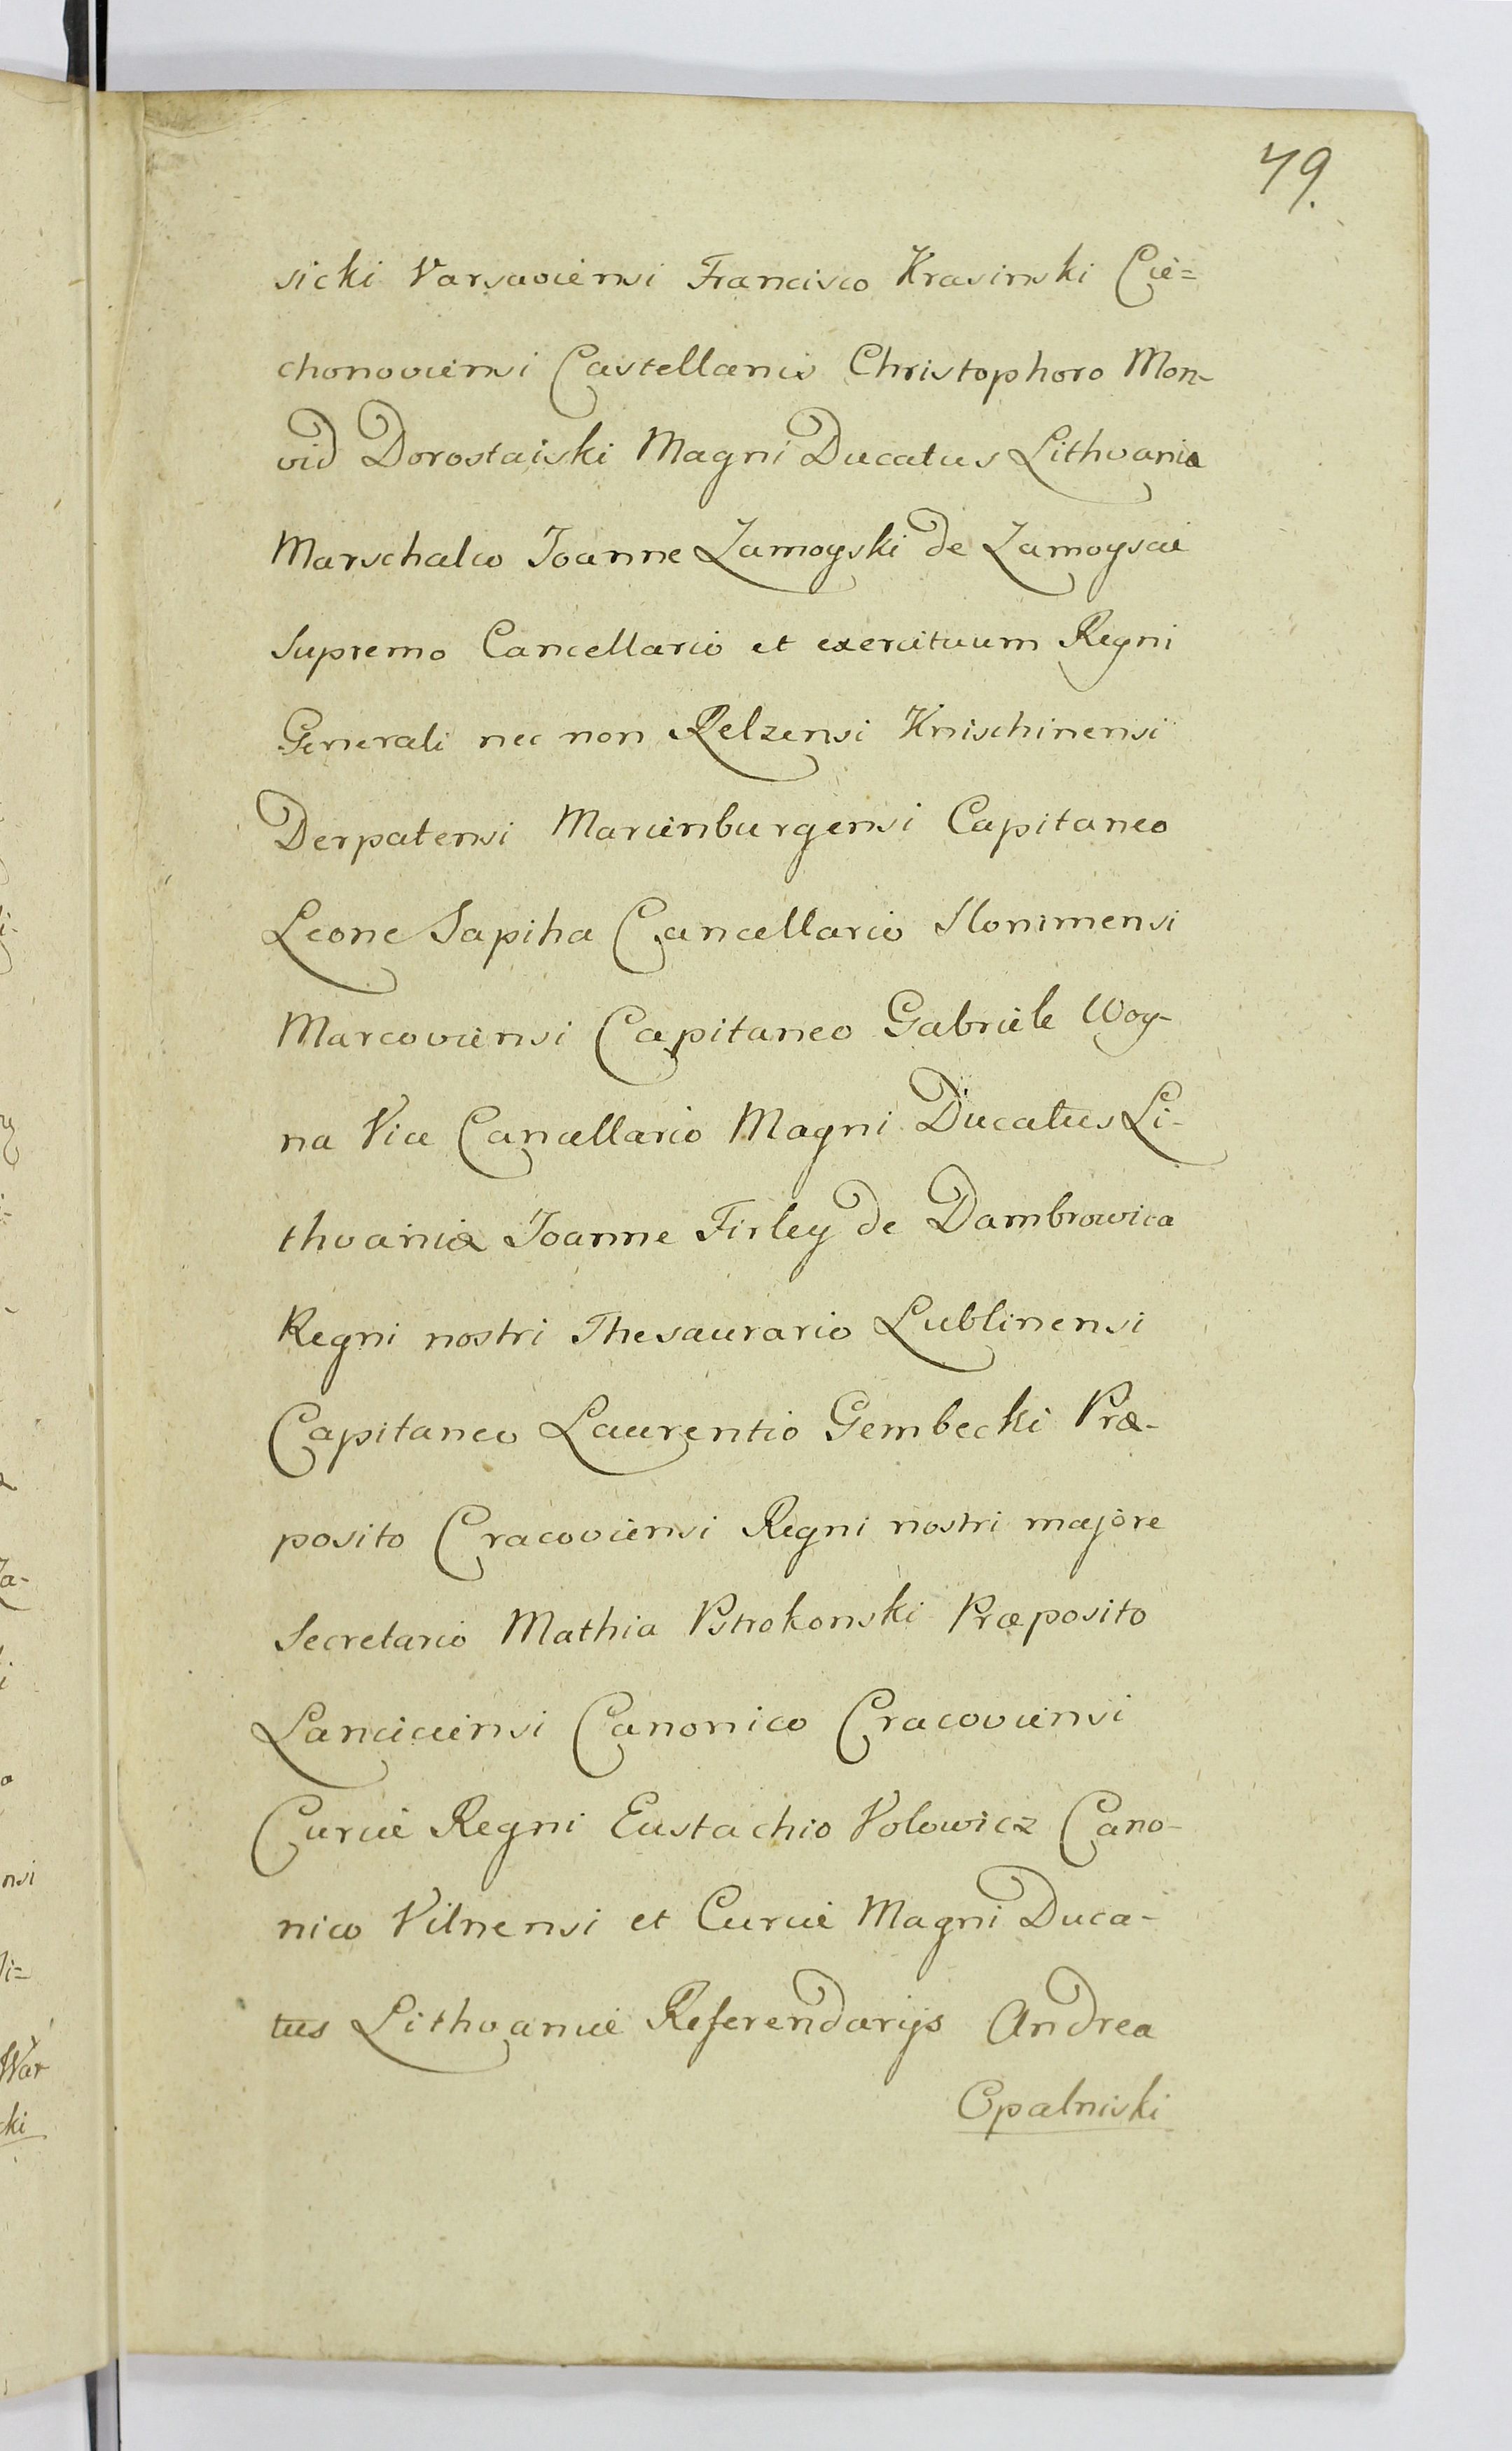 49.
sicki Varsaviensi Francisco Krasinski Cie=
chonoviensi Castellanis Christophoro Mon-
vid Dorostaiski Magni Ducatus Lithvaniæ
Marschalco Joanne Zamoyski de Zamoyscie
Supremo Cancellario et exercituum Regni
Generali nec non Relzensi Knischinensi
Derpatensi Marienburgensi Capitaneo
Leone Sapiha Cancellario Slonimensi
Marcoviensi Capitaneo Gabriele Woy-
na Vice Cancellario Magni Ducatus Li-
thvaniæ Joanne Firley de Dambrowica
Regni nostri Thesaurario Lublinensi
Capitaneo Laurentio Gembecki Præ-
posito Cracoviensi Regni nostri majore
Secretario Mathia Pstrokonski Præposito
Lanciciensi Canonico Cracoviensi
Curiæ Regni Eustachio Volowicz Cano-
nico Vilnensi et Curiæ Magni Duca-
tus Lithvaniæ Referendarijs Andrea
Opalniski